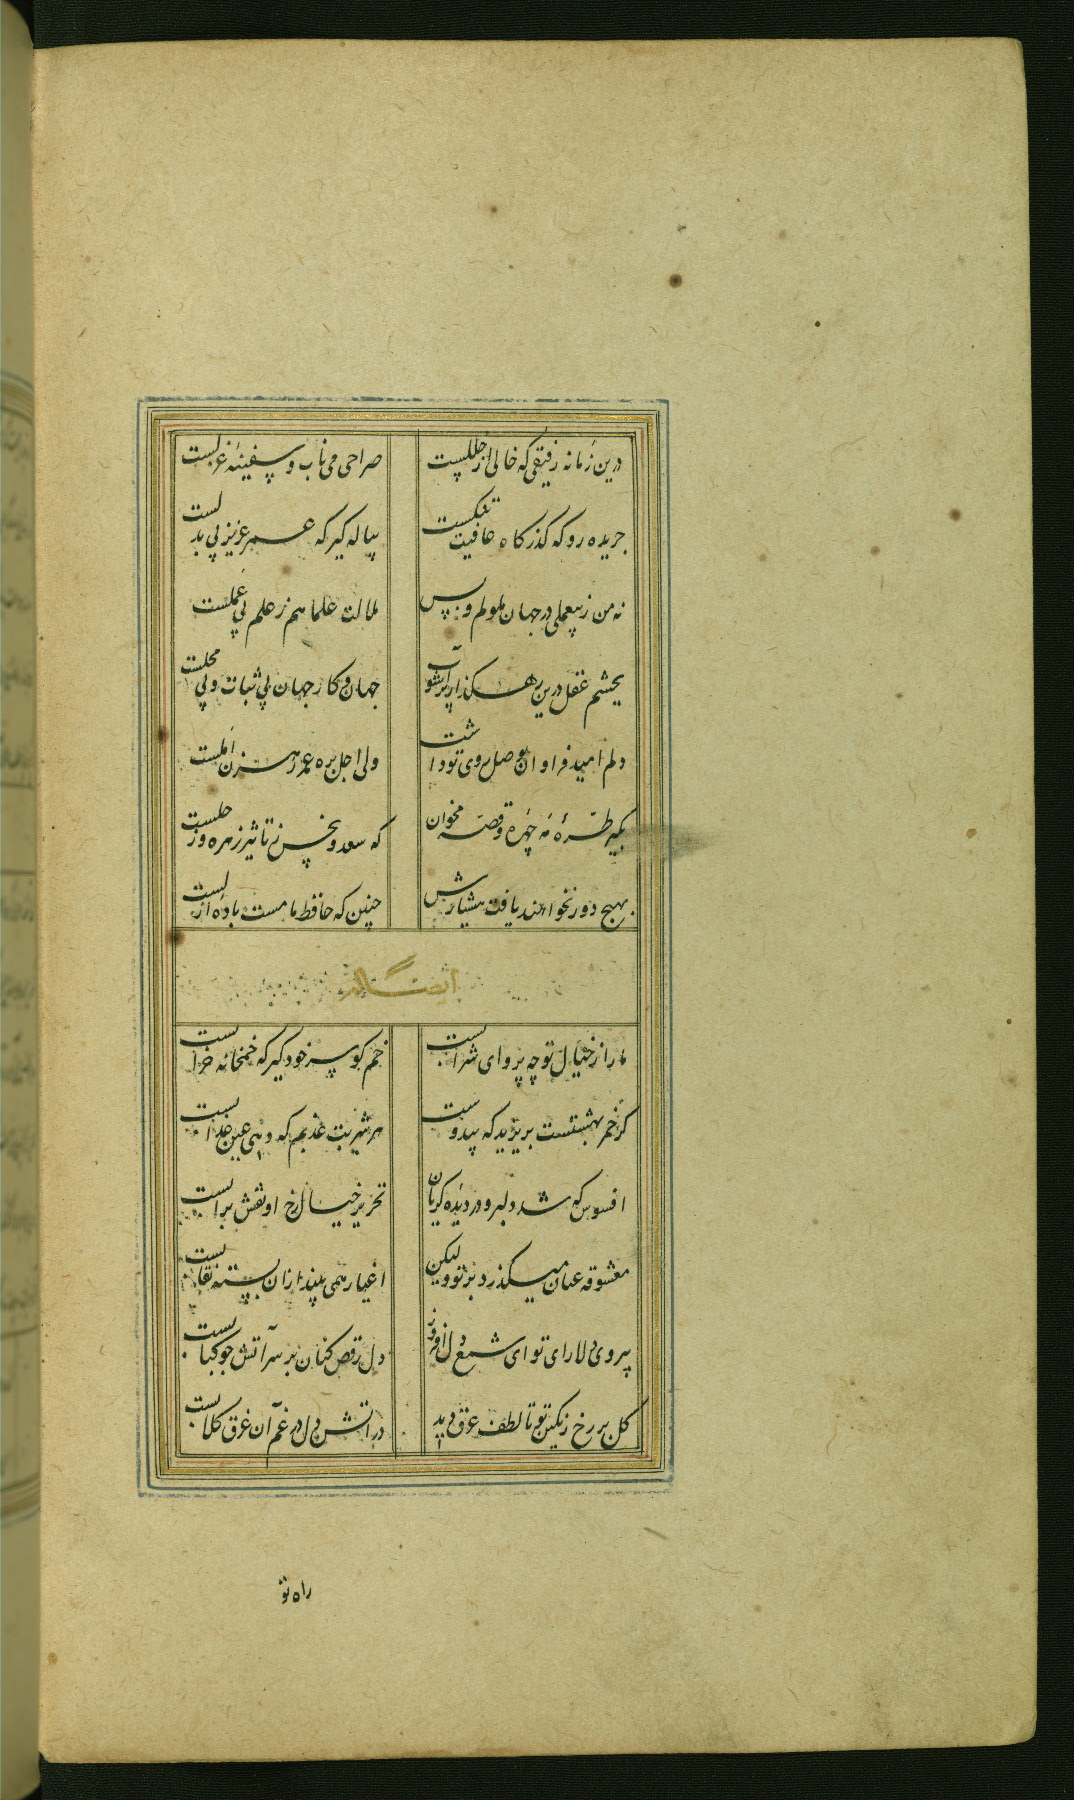 درین زمانه رفیقی که خالی از خللست
صراحی می ناب و سفینه غزلست
جریده رو که گذرکاه عافیت تنکست
پیاله کیر که عمر عزیز بی بدلست
نه من ز بیعملی در جهان ملولم و بس
ملالت علما هم ز علم بی عملست
بچشم عقل درین رهکذار پر آشوب
جهان و کار جهان بی ثبات و بی محلست
دلم امید فراوان بوصل روی تو داشت
ولی اجل بره عمر رهزن املست
بکیر طرّهٔ مه چهره و قصه مخوان
که سعد و نحس ز تاثیر زهره و زحلست
بهیچ دور نخواهند یافت هشیارش
چنین که حافظ ما مست بادهٔ ازلست
ایضاله
ما را ز خیال تو چه پروای شرابست
خم کو سر خود کیر که خمخانه خرابست
کر خمر بهشتست بریزید که بیدوست
هر شربت عذبم که دهی عین عذابست
افسوس که شد دلبر و در دیده کریان
تحریر خیال رخ او نقش بر ابست
معشوقه عیان میکذرد بر تو ولیکن
اغیار همی بیند ازان بسته نقابست
بی روی دلارای تو ای شمع دل افروز
دل رقص کنان بر سر آتش چو کبابست
کل بر رخ رنکین تو تا لطف عرق دید
در اتش دل در غم آن غرق کلابست
راه تو